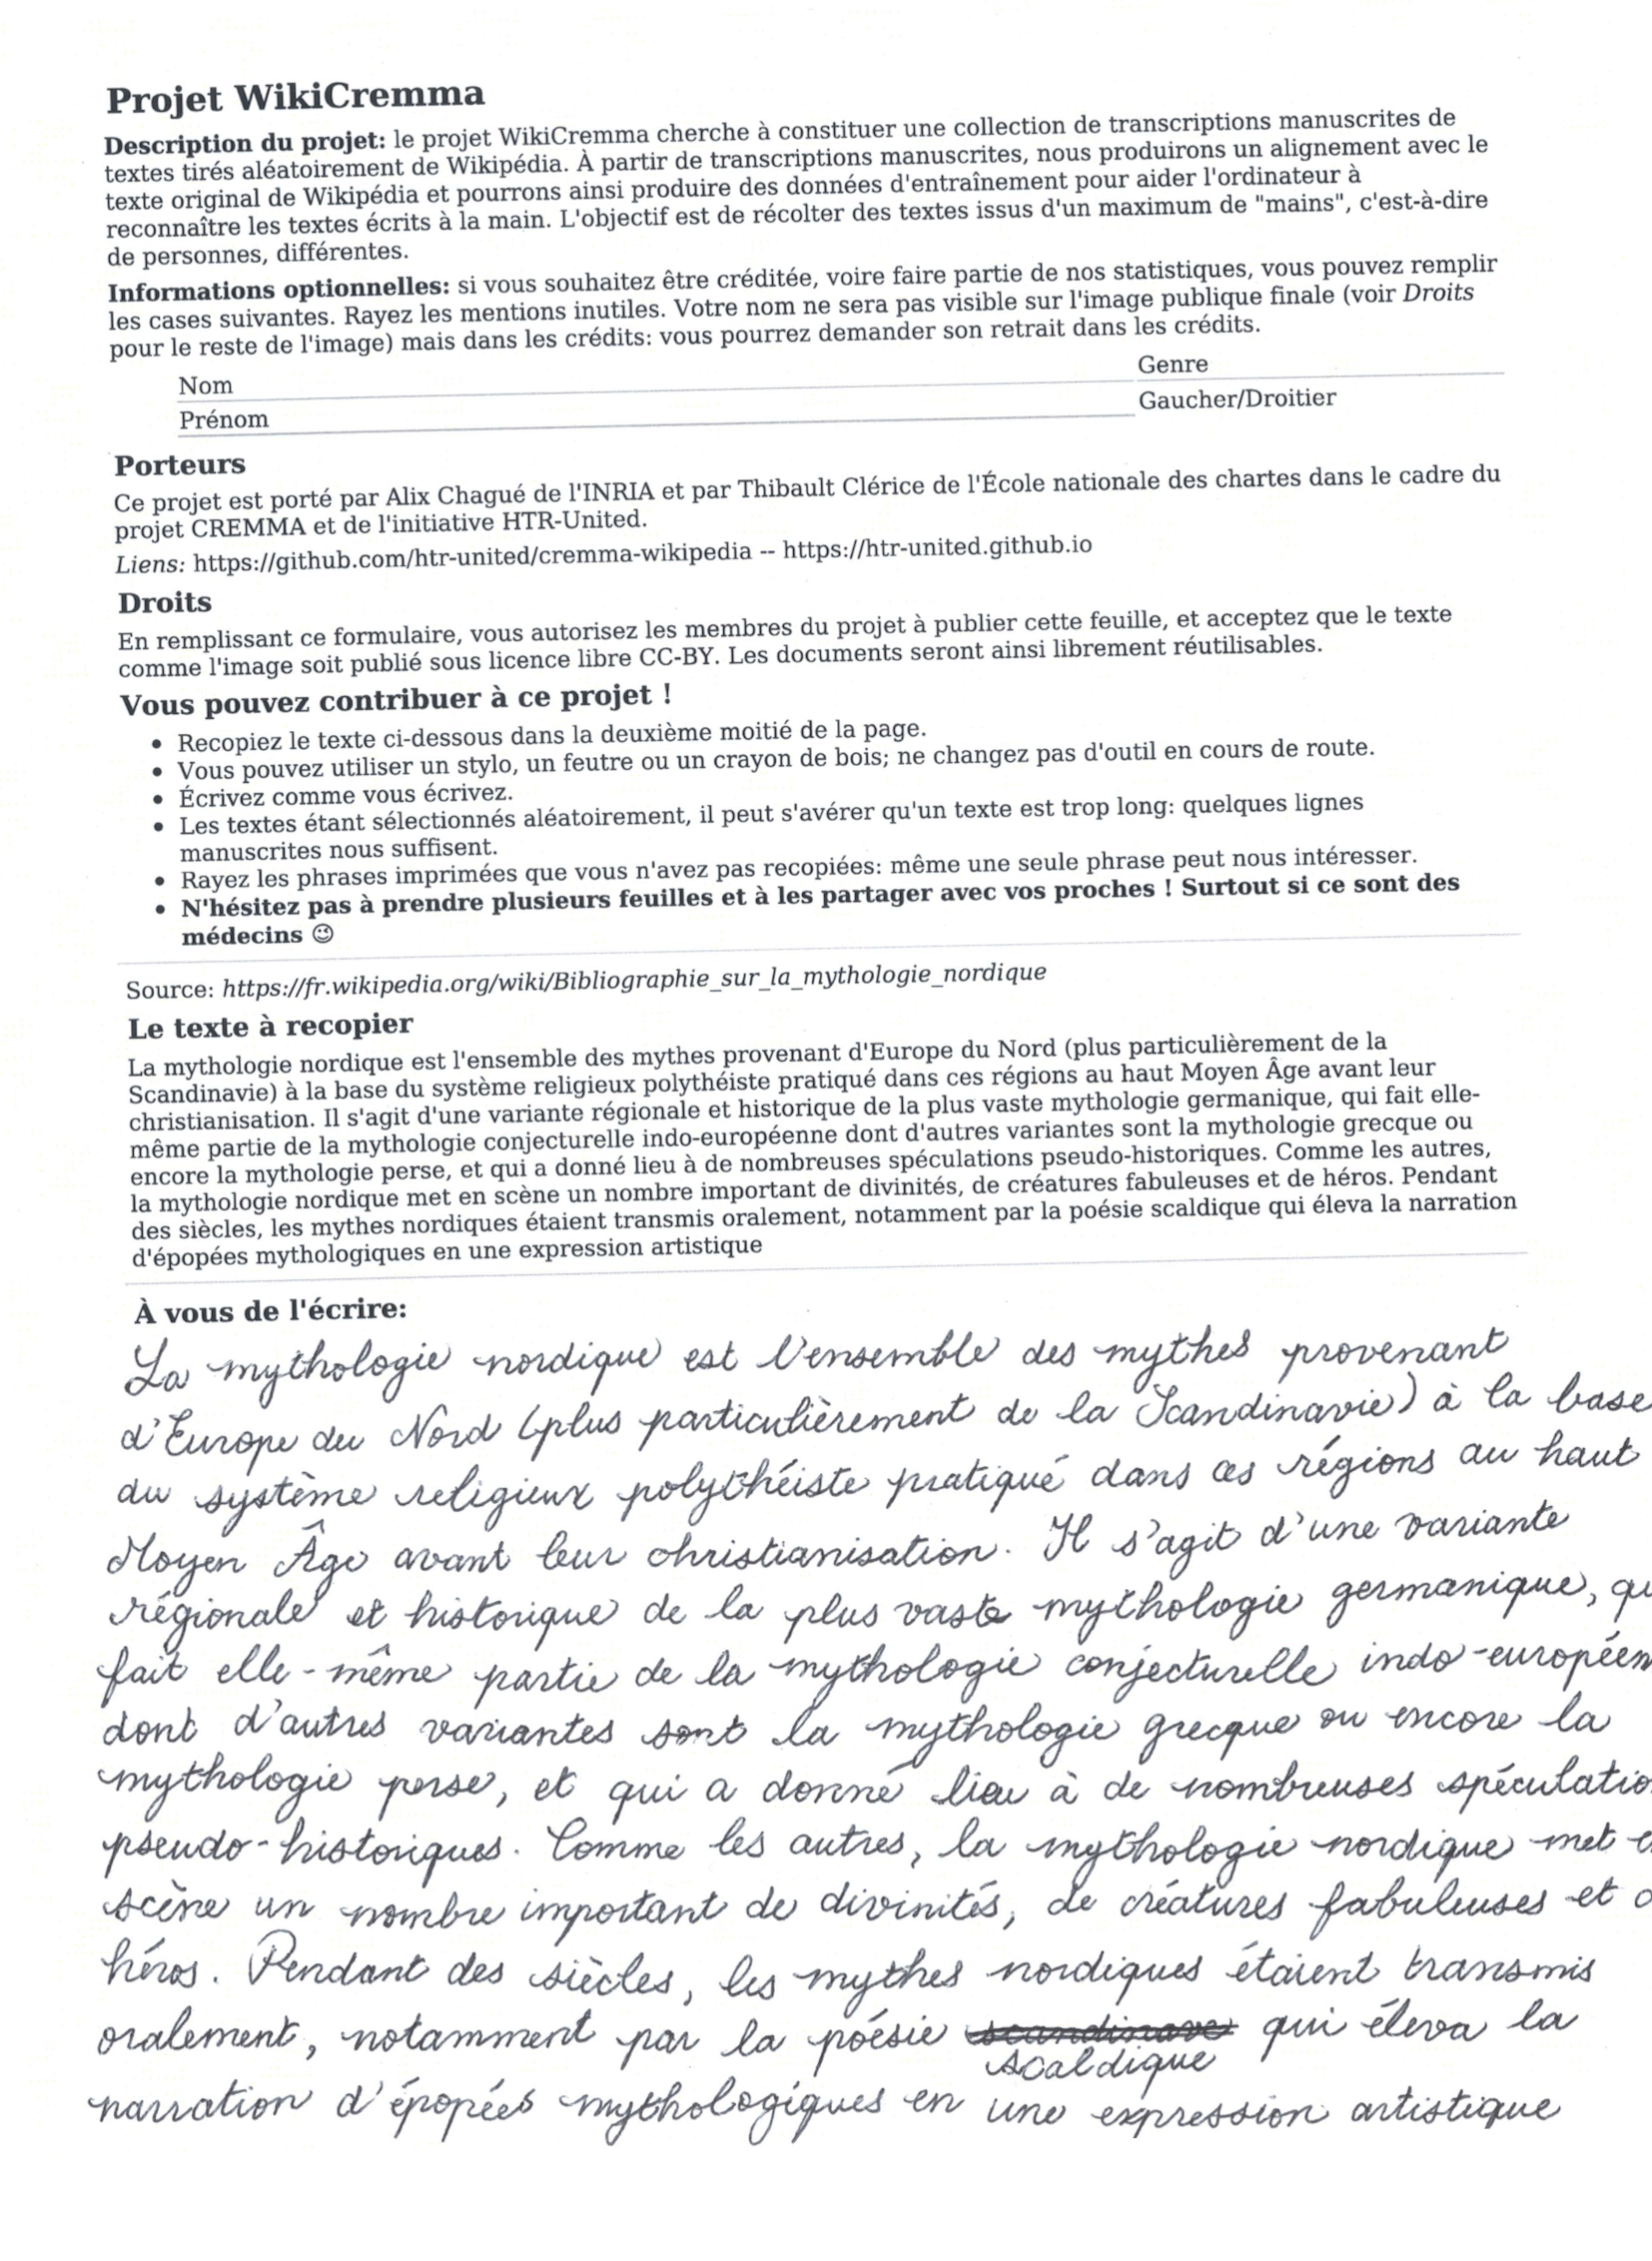 Projet WikiCremma
Description du projet: le projet WikiCremma cherche à constituer une collection de transcriptions manuscrites de
textes tirés aléatoirement de Wikipédia. À partir de transcriptions manuscrites, nous produirons un alignement avec le
texte original de Wikipédia et pourrons ainsi produire des données d'entraînement pour aider l'ordinateur à
reconnaître les textes écrits à la main. L'objectif est de récolter des textes issus d'un maximum de "mains", c'est-à-dire
de personnes, différentes.
Informations optionnelles: si vous souhaitez être créditée, voire faire partie de nos statistiques, vous pouvez remplir
les cases suivantes. Rayez les mentions inutiles. Votre nom ne sera pas visible sur l'image publique finale (voir Droits
pour le reste de l'image) mais dans les crédits: vous pourrez demander son retrait dans les crédits.
Nom Genre
Prénom Gaucher/Droitier
Porteurs
Ce projet est porté par Alix Chagué de l'INRIA et par Thibault Clérice de l'École nationale des chartes dans le cadre du
projet CREMMA et de l'initiative HTR-United.
Liens: https://github.com/htr-united/cremma-wikipedia -- https://htr-united.github.io
Droits
En remplissant ce formulaire, vous autorisez les membres du projet à publier cette feuille, et acceptez que le texte
comme l'image soit publié sous licence libre CC-BY. Les documents seront ainsi librement réutilisables.
Vous pouvez contribuer à ce projet !
• Recopiez le texte ci-dessous dans la deuxième moitié de la page.
• Vous pouvez utiliser un stylo, un feutre ou un crayon de bois; ne changez pas d'outil en cours de route.
• Écrivez comme vous écrivez.
• Les textes étant sélectionnés aléatoirement, il peut s'avérer qu'un texte est trop long: quelques lignes
manuscrites nous suffisent.
• Rayez les phrases imprimées que vous n'avez pas recopiées: même une seule phrase peut nous intéresser.
• N'hésitez pas à prendre plusieurs feuilles et à les partager avec vos proches ! Surtout si ce sont des
médecins 😉
Source: https://fr.wikipedia.org/wiki/Bibliographie_sur_la_mythologie_nordique
Le texte à recopier
La mythologie nordique est l'ensemble des mythes provenant d'Europe du Nord (plus particulièrement de la
Scandinavie) à la base du système religieux polythéiste pratiqué dans ces régions au haut Moyen Âge avant leur
christianisation. Il s'agit d'une variante régionale et historique de la plus vaste mythologie germanique, qui fait elle-
même partie de la mythologie conjecturelle indo-européenne dont d'autres variantes sont la mythologie grecque ou
encore la mythologie perse, et qui a donné lieu à de nombreuses spéculations pseudo-historiques. Comme les autres,
la mythologie nordique met en scène un nombre important de divinités, de créatures fabuleuses et de héros. Pendant
des siècles, les mythes nordiques étaient transmis oralement, notamment par la poésie scaldique qui éleva la narration
d'épopées mythologiques en une expression artistique
À vous de l'écrire:
La mythologie nordique est l'ensemble des mythes provenant
d'Europe du Nord (plus particulièrement de la Scandinavie) à la base
du système religieux polythéiste pratiqué dans ces régions au haut
Moyen Âge avant leur christianisation. Il s'agit d'une variante
régionale et historique de la plus vaste mythologie germanique, qu
fait elle-même partie de la mythologie conjecturelle indo-européen
dont d'autres variantes sont la mythologie grecque ou encore la
mythologie perse, et qui a donné lieu à de nombreuses spéculatio
pseudo-historiques. Comme les autres, la mythologie nordique met
scène un nombre important de divinités, de créatures fabuleuses et
héros. Pendant des siècles, les mythes nordiques étaient transmis
oralement, notamment par la poésie scandinave qui éleva la
scaldique
narration d'épopées mythologiques en une expression artistique